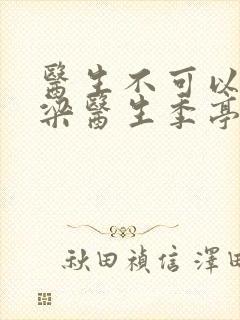 醫生不可以
梁醫生季亭
秋田禎信 澤田